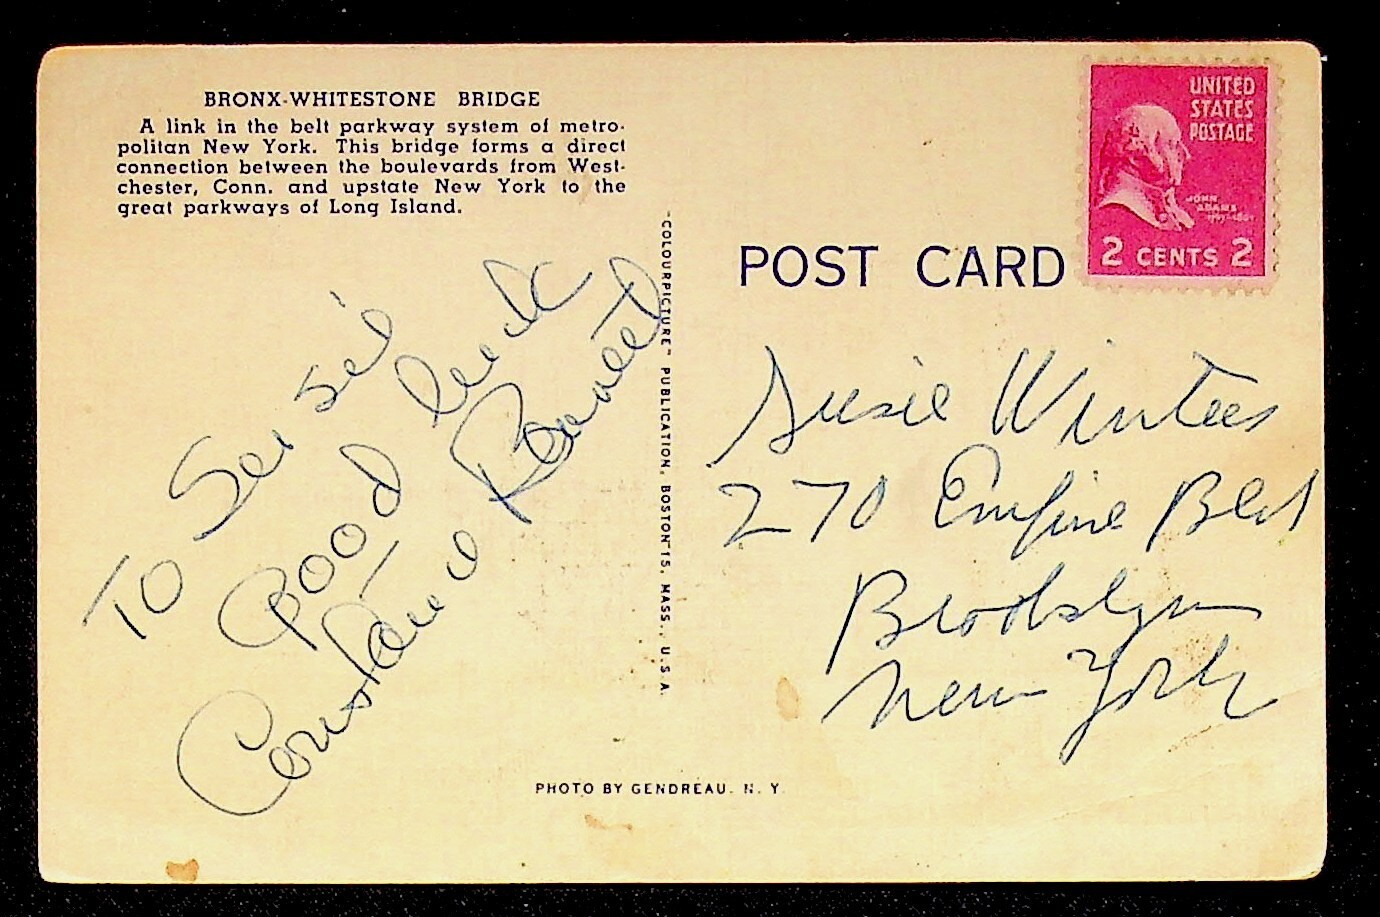 BRONX-WHITESTONE BRIDGE
A link in the belt parkway system of metro-
politan New York. This bridge forms a direct
connection between the boulevards from West-
chester, Conn. and upstate New York to the
great parkways of Long Island.
"COLOURPICTURE" PUBLICATION, BOSTON 15, MASS., U.S.A.
POST CARD
UNITED
STATES
POSTAGE
JOHN
ADAMS
1797-1801
2 CENTS 2
To Susie
Good luck
Constance Bennett
Susie Winters
270 Empire Blvd
Brooklyn
New York
PHOTO BY GENDREAU. N. Y.